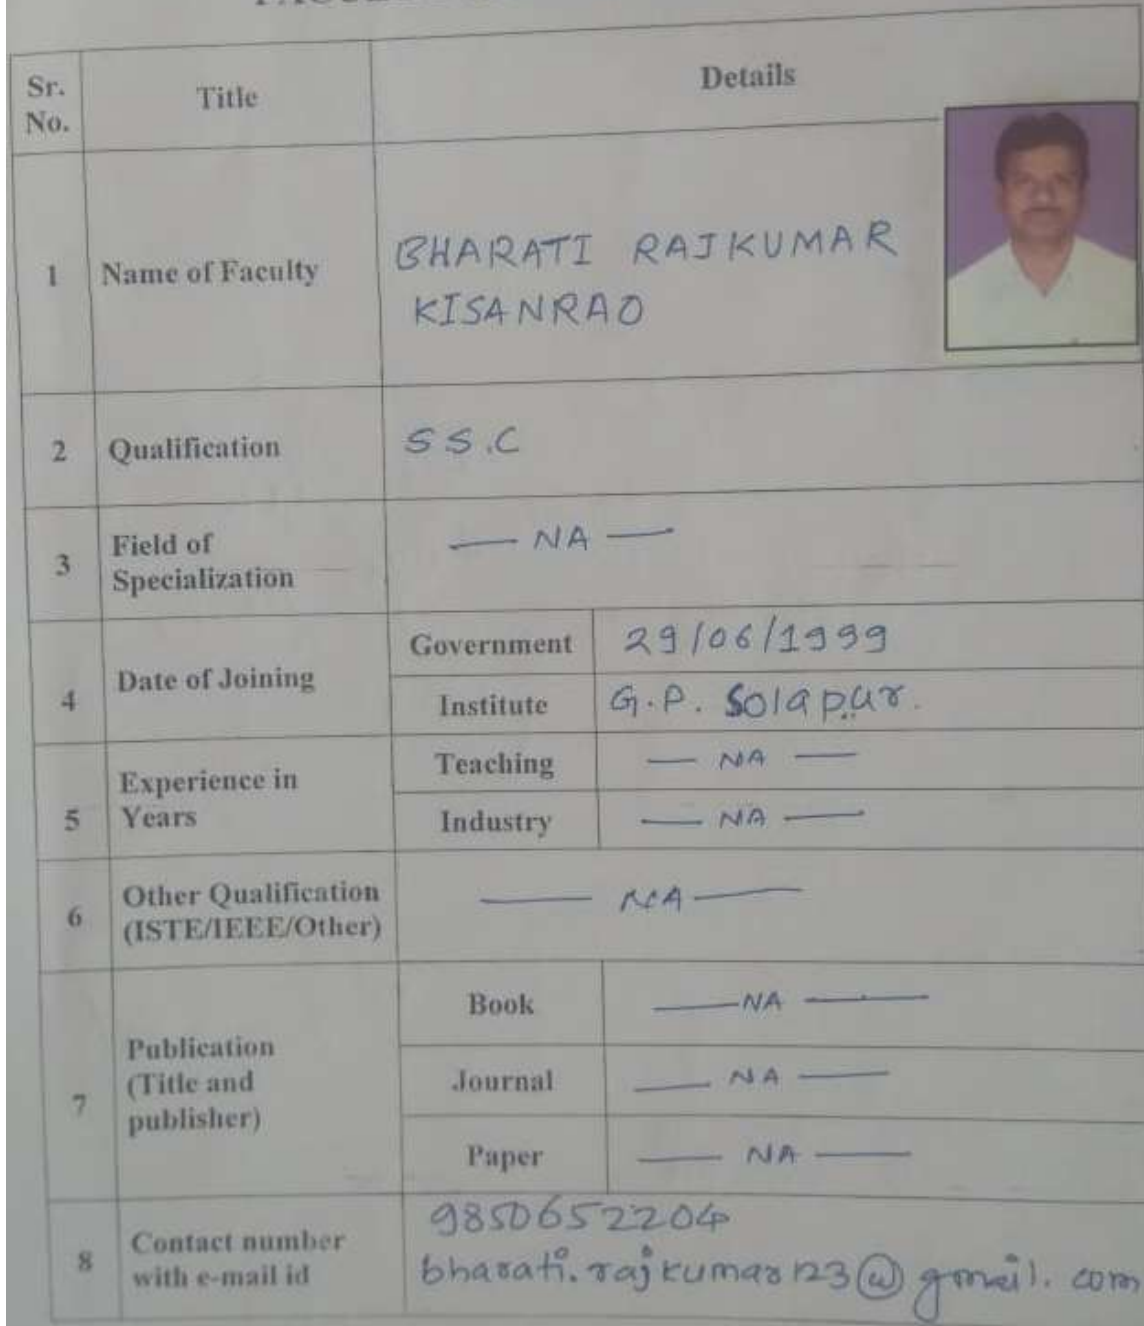 Sr. No. Title Details
1 Name of Faculty BHARATI RAJKUMAR
KISANRAO
2 Qualification SS.C
3 Field of Specialization — NA —
4 Date of Joining Government 29/06/1999
Institute G.P. Solapur.
5 Experience in Years Teaching — NA —
Industry — NA —
6 Other Qualification (ISTE/IEEE/Other) — NA —
7 Publication (Title and publisher) Book — NA —
Journal — NA —
Paper — NA —
8 Contact number with e-mail id 9850652204
bharati.rajkumar123@gmail.com